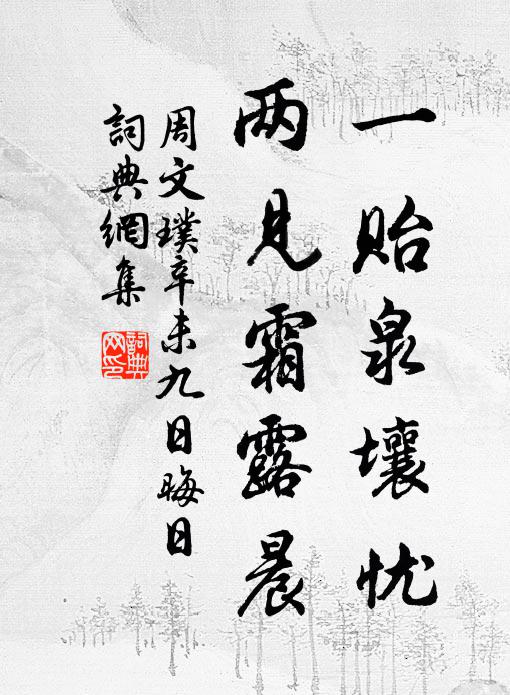 一贻泉壤忧
两见霜露晨
周文璞辛未九日晦日
詞典網集
詞典网印